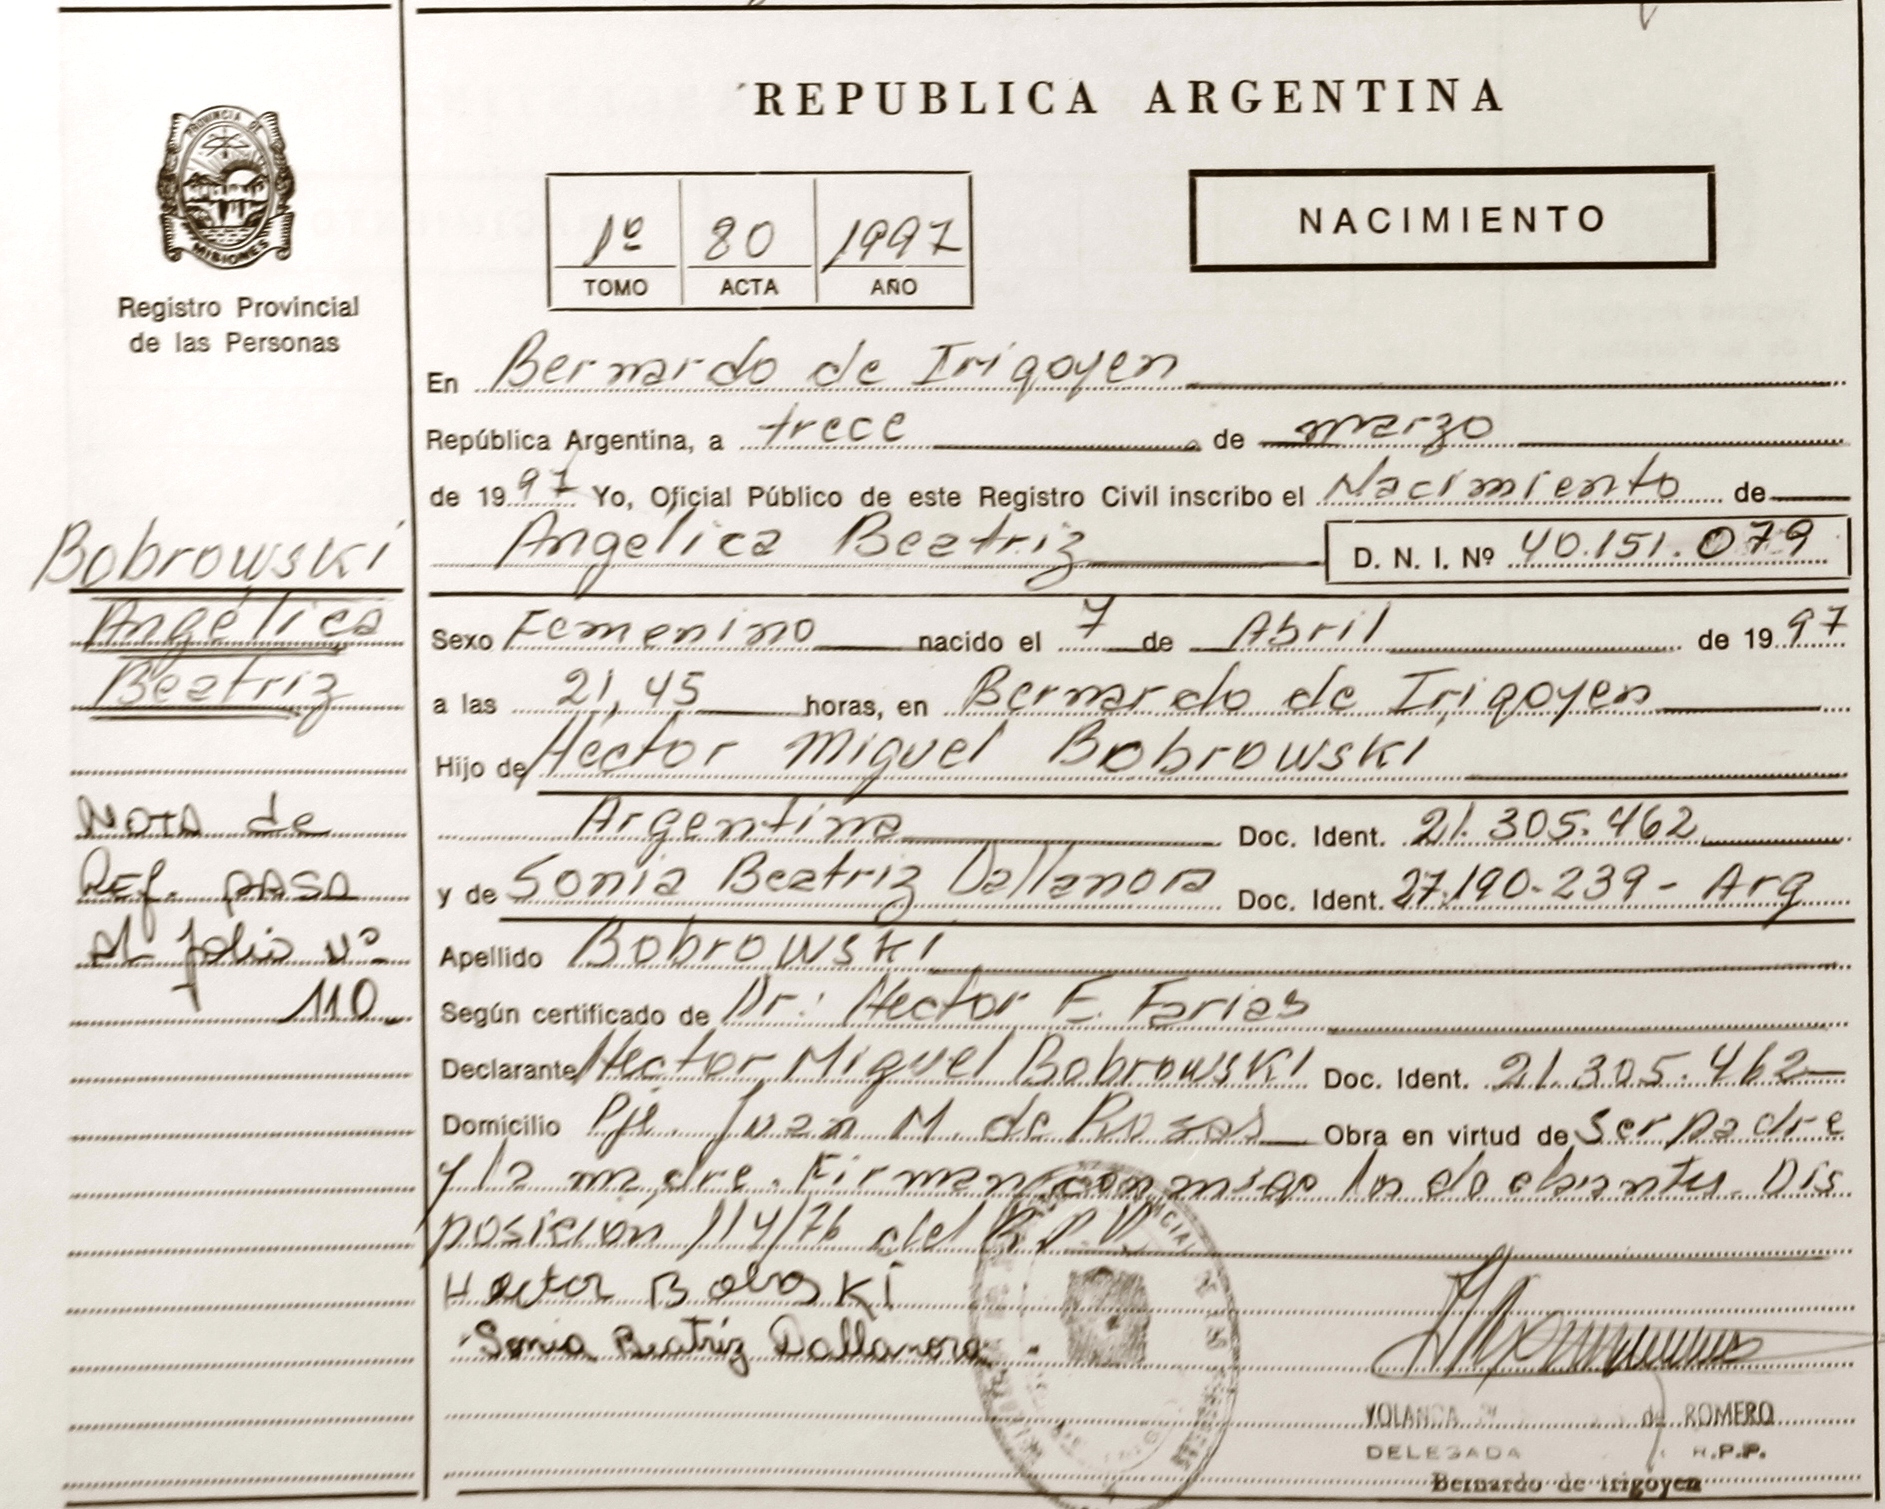 REPUBLICA ARGENTINA
PROVINCIA DE
MISIONES
Registro Provincial
de las Personas
1º 80 1997
TOMO ACTA AÑO
NACIMIENTO
En Bernardo de Irigoyen
República Argentina, a trece de marzo
de 1997 Yo, Oficial Público de este Registro Civil inscribo el Nacimiento de
Angélica Beatriz D. N. I. Nº 40.151.079
Sexo Femenino nacido el 7 de Abril de 1997
a las 21,45 horas, en Bernardo de Irigoyen
Hijo de Hector Miguel Bobrowski
Argentina Doc. Ident. 21.305.462
y de Sonia Beatriz Dallanora Doc. Ident. 27.190.239 - Arg
Apellido Bobrowski
Según certificado de Dr: Hector E. Farias
Declarante Hector Miguel Bobrowski Doc. Ident. 21.305.462
Domicilio Pje. Juan M. de Rosas Obra en virtud de Ser padre
y la madre. Firman conmigo Dis
posición 114/76 del R.P.
Hector
Sonia Beatriz Dallanora
YOLANDA de ROMERO
DELEGADA R.P.P.
Bernardo de Irigoyen
Bobrowski
Angélica
Beatriz
NOTA de
Ref. PASA
al folio Nº
110